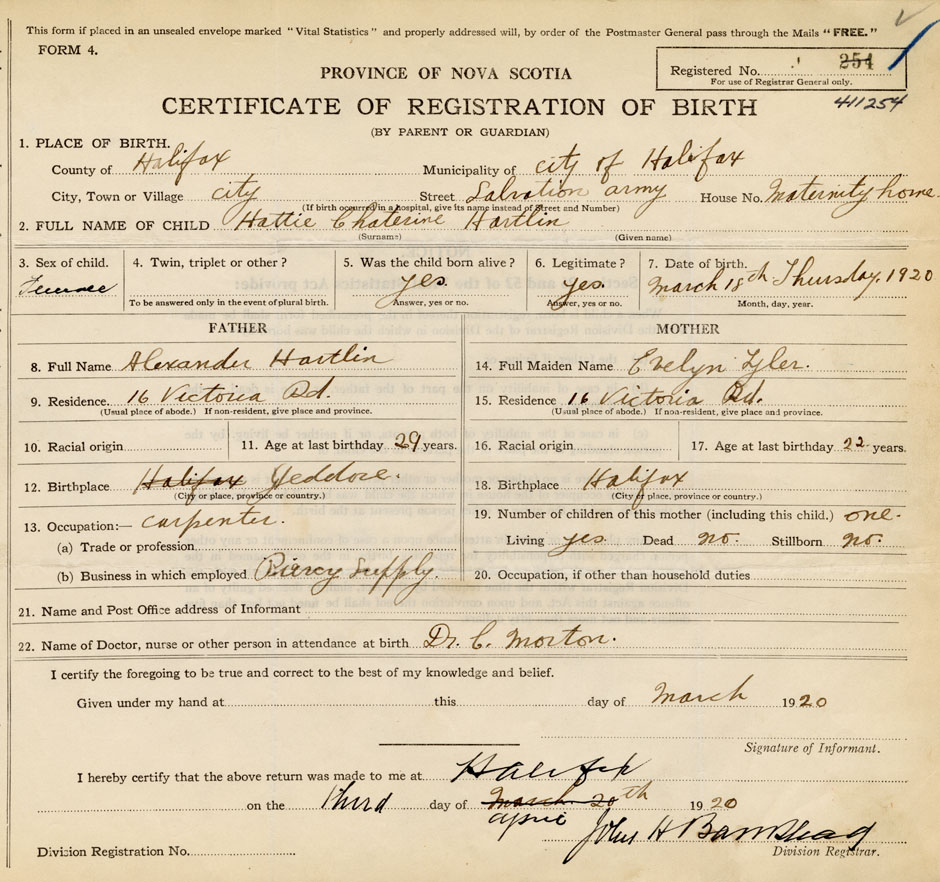 This form if placed in an unsealed envelope marked "Vital Statistics" and properly addressed will, by order of the Postmaster General pass through the Mails "FREE."
FORM 4.
PROVINCE OF NOVA SCOTIA
Registered No. 254
For use of Registrar General only.
411254
CERTIFICATE OF REGISTRATION OF BIRTH
(BY PARENT OR GUARDIAN)
1. PLACE OF BIRTH.
County of Halifax Municipality of city of Halifax
City, Town or Village city Street Salvation army House No. Maternity home
(If birth occurred in a hospital, give its name instead of Street and Number)
2. FULL NAME OF CHILD Hattie Chaterine Hartlin
(Surname) (Given name)
3. Sex of child. 4. Twin, triplet or other? 5. Was the child born alive? 6. Legitimate? 7. Date of birth.
Female yes. yes. March 18th Thursday. 1920
To be answered only in the event of plural birth. Answer, yes or no. Answer, yes or no. Month, day, year.
FATHER MOTHER
8. Full Name Alexander Hartlin 14. Full Maiden Name Evelyn Tyler.
9. Residence. 16 Victoria Rd. 15. Residence 16 Victoria Rd.
(Usual place of abode.) If non-resident, give place and province. (Usual place of abode.) If non-resident, give place and province.
10. Racial origin 11. Age at last birthday 29 years. 16. Racial origin 17. Age at last birthday 22 years.
12. Birthplace Halifax Jeddore. 18. Birthplace Halifax
(City or place, province or country.) (City or place, province or country.)
13. Occupation:— carpenter. 19. Number of children of this mother (including this child.) one.
(a) Trade or profession Living yes Dead no. Stillborn no.
(b) Business in which employed Piercy Supply. 20. Occupation, if other than household duties
21. Name and Post Office address of Informant
22. Name of Doctor, nurse or other person in attendance at birth Dr. C. Morton.
I certify the foregoing to be true and correct to the best of my knowledge and belief.
Given under my hand at this day of March 1920
Signature of Informant.
I hereby certify that the above return was made to me at Halifax
on the Third day of March 20th 1920
April John H Barnstead
Division Registration No. Division Registrar.